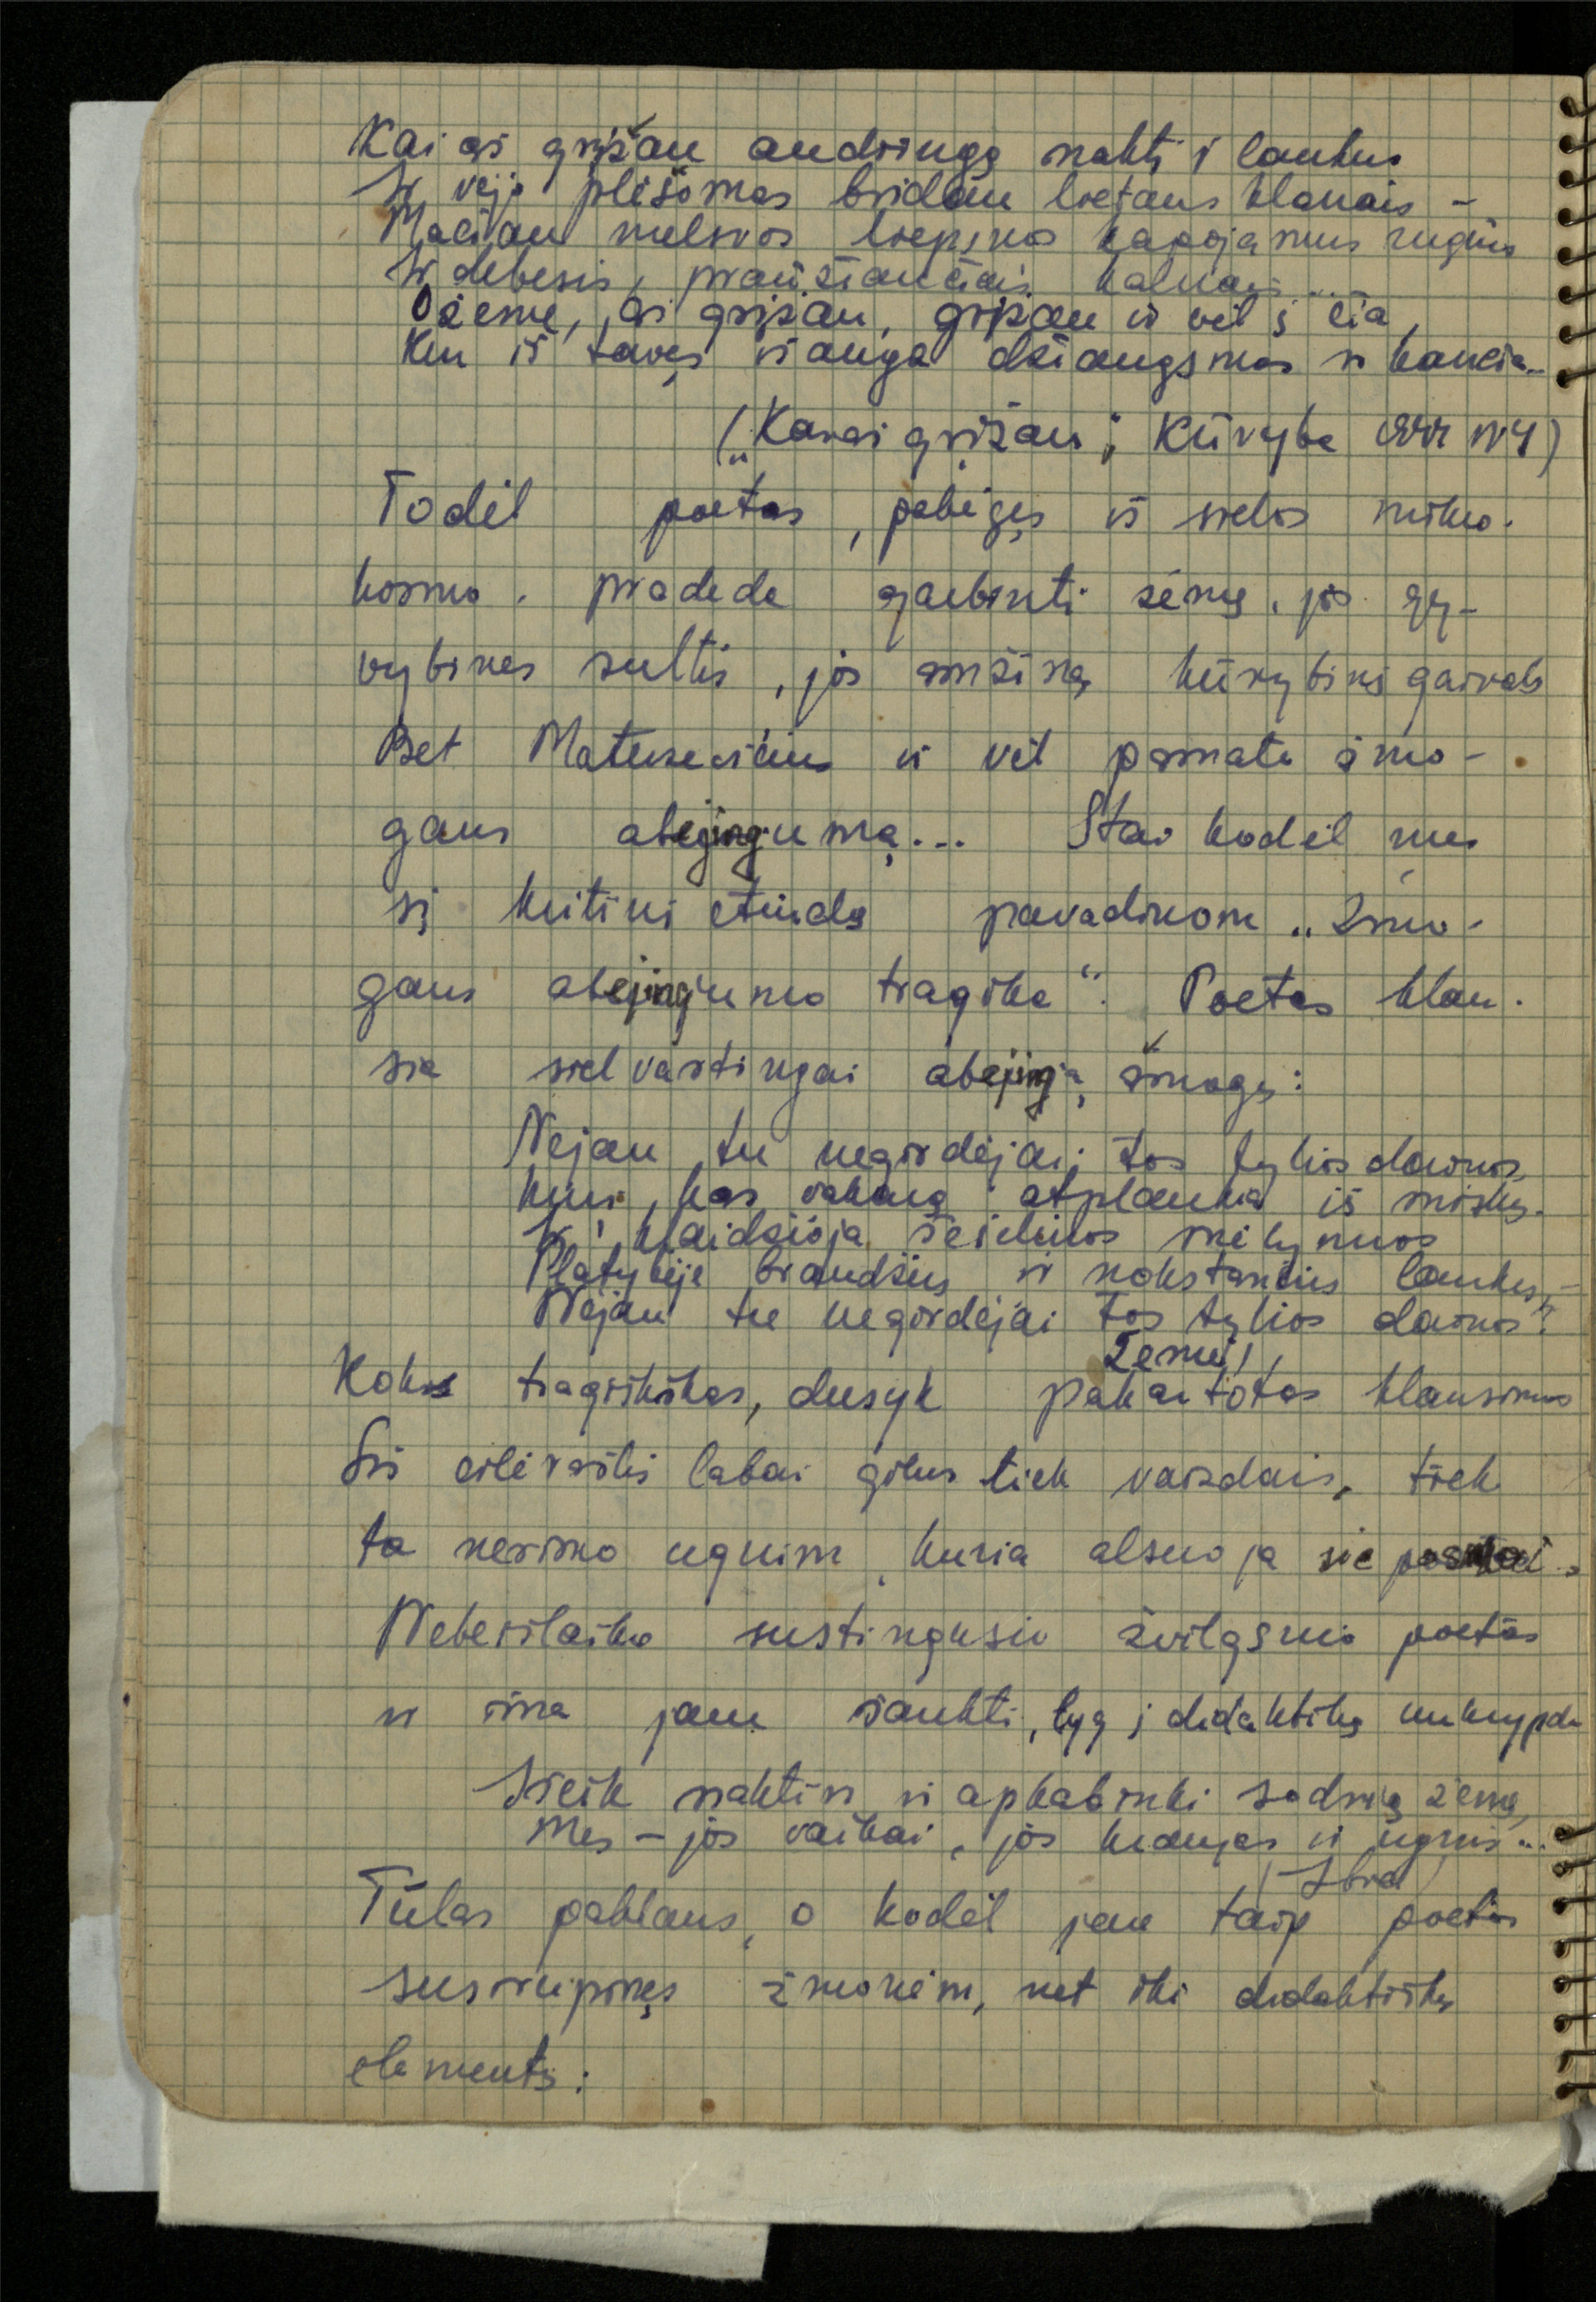 Kai aš grįžau audringą naktį į laukus
Ir vėjo plėšomas bridau lietaus klanais –
Mačiau melsvos liepsnos kapojamus rugius
Ir debesis, praūžiančiais kalnais...
O žeme, aš grįžau, grįžau ir vėl į čia,
Kur iš tavęs išauga džiaugsmas ir kančia...
("Kai aš grįžau"; Kūryba Nr 4)
Todėl poetas, pabėgęs iš sielos mikro-
kosmo, pradeda garbinti žemę, jos gy-
vybines sultis, jos amžiną kūrybinį gaivalą
Bet Matuzevičius ir vėl pamato žmo-
gaus abejingumą... Štai kodėl mes
šį kritinį etiudą pavadinom „Žmo-
gaus abejingumo tragika“. Poetas klau-
sia sielvartingai abejingą žmogų:
Nejau tu negirdėjai tos tylios dainos,
kuri, kas vakarą atplaukia iš miškų.
Ir klaidžioja šešėliuos mėlynuos
Platybėje brandžių ir nokstančių laukų, –
Nejau tu negirdėjai tos tylios dainos?
Žemei
Koks tragiškas, dusyk pakartotas klausimas
Šis eilėraštis labai gilus tiek vaizdais, tiek
ta nerimo ugnim, kuria alsuoja šie posmai.
Nebeišlaiko sustingusio žvilgsnio poetas
ir ima jam šaukti, lyg į didaktiką nukrypdamas
Išeik naktin ir apkabinki sodrią žemę,
Mes – jos vaikai, jos kraujas ir ugnis...
Tūlas paklaus, o kodėl jau taip poetas
susirūpinęs žmonėm, net iki didaktiškų
elementų: